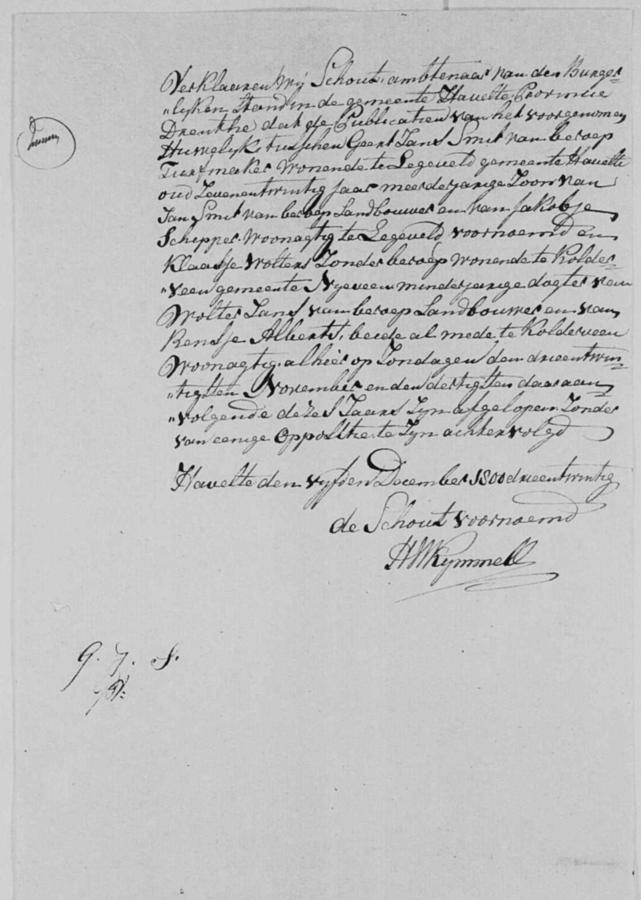 Verklaaren Wij Schout, ambtenaar van den Burger=
"lyken Stand in de gemeente Havelte Provincie
Drenthe dat de Publicatien van het voorgenomen
Huwelyk tusschen Geert Jans Smit van beroep
Turfmaker wonende te Legeveld gemeente Havelte
oud Zevenentwintig jaar meerderjarige Zoon van
Jan Smit van beroep Landbouwer en van Jakobje
Schepper woonagtig te Legeveld voornoemd en
Klaasje Wolters Zonder beroep wonende te Kolder=
"veen gemeente Nyeveen minderjarige dogter van
Wolter Jans van beroep Landbouwer en van
Rensje Alberts, beide al mede te Kolderveen
Woonagtig, alhier op Zondagen den drieentwin=
"tigsten November en den dertigsten daaraan
"volgende dezes Jaars Zyn afgelopen Zonder
van eenige Oppositie te Zyn achtervolgd
Havelte den vyfden December 1800 drieentwintig
de Schout voornoemd
HWKymmell
9. 7. S.